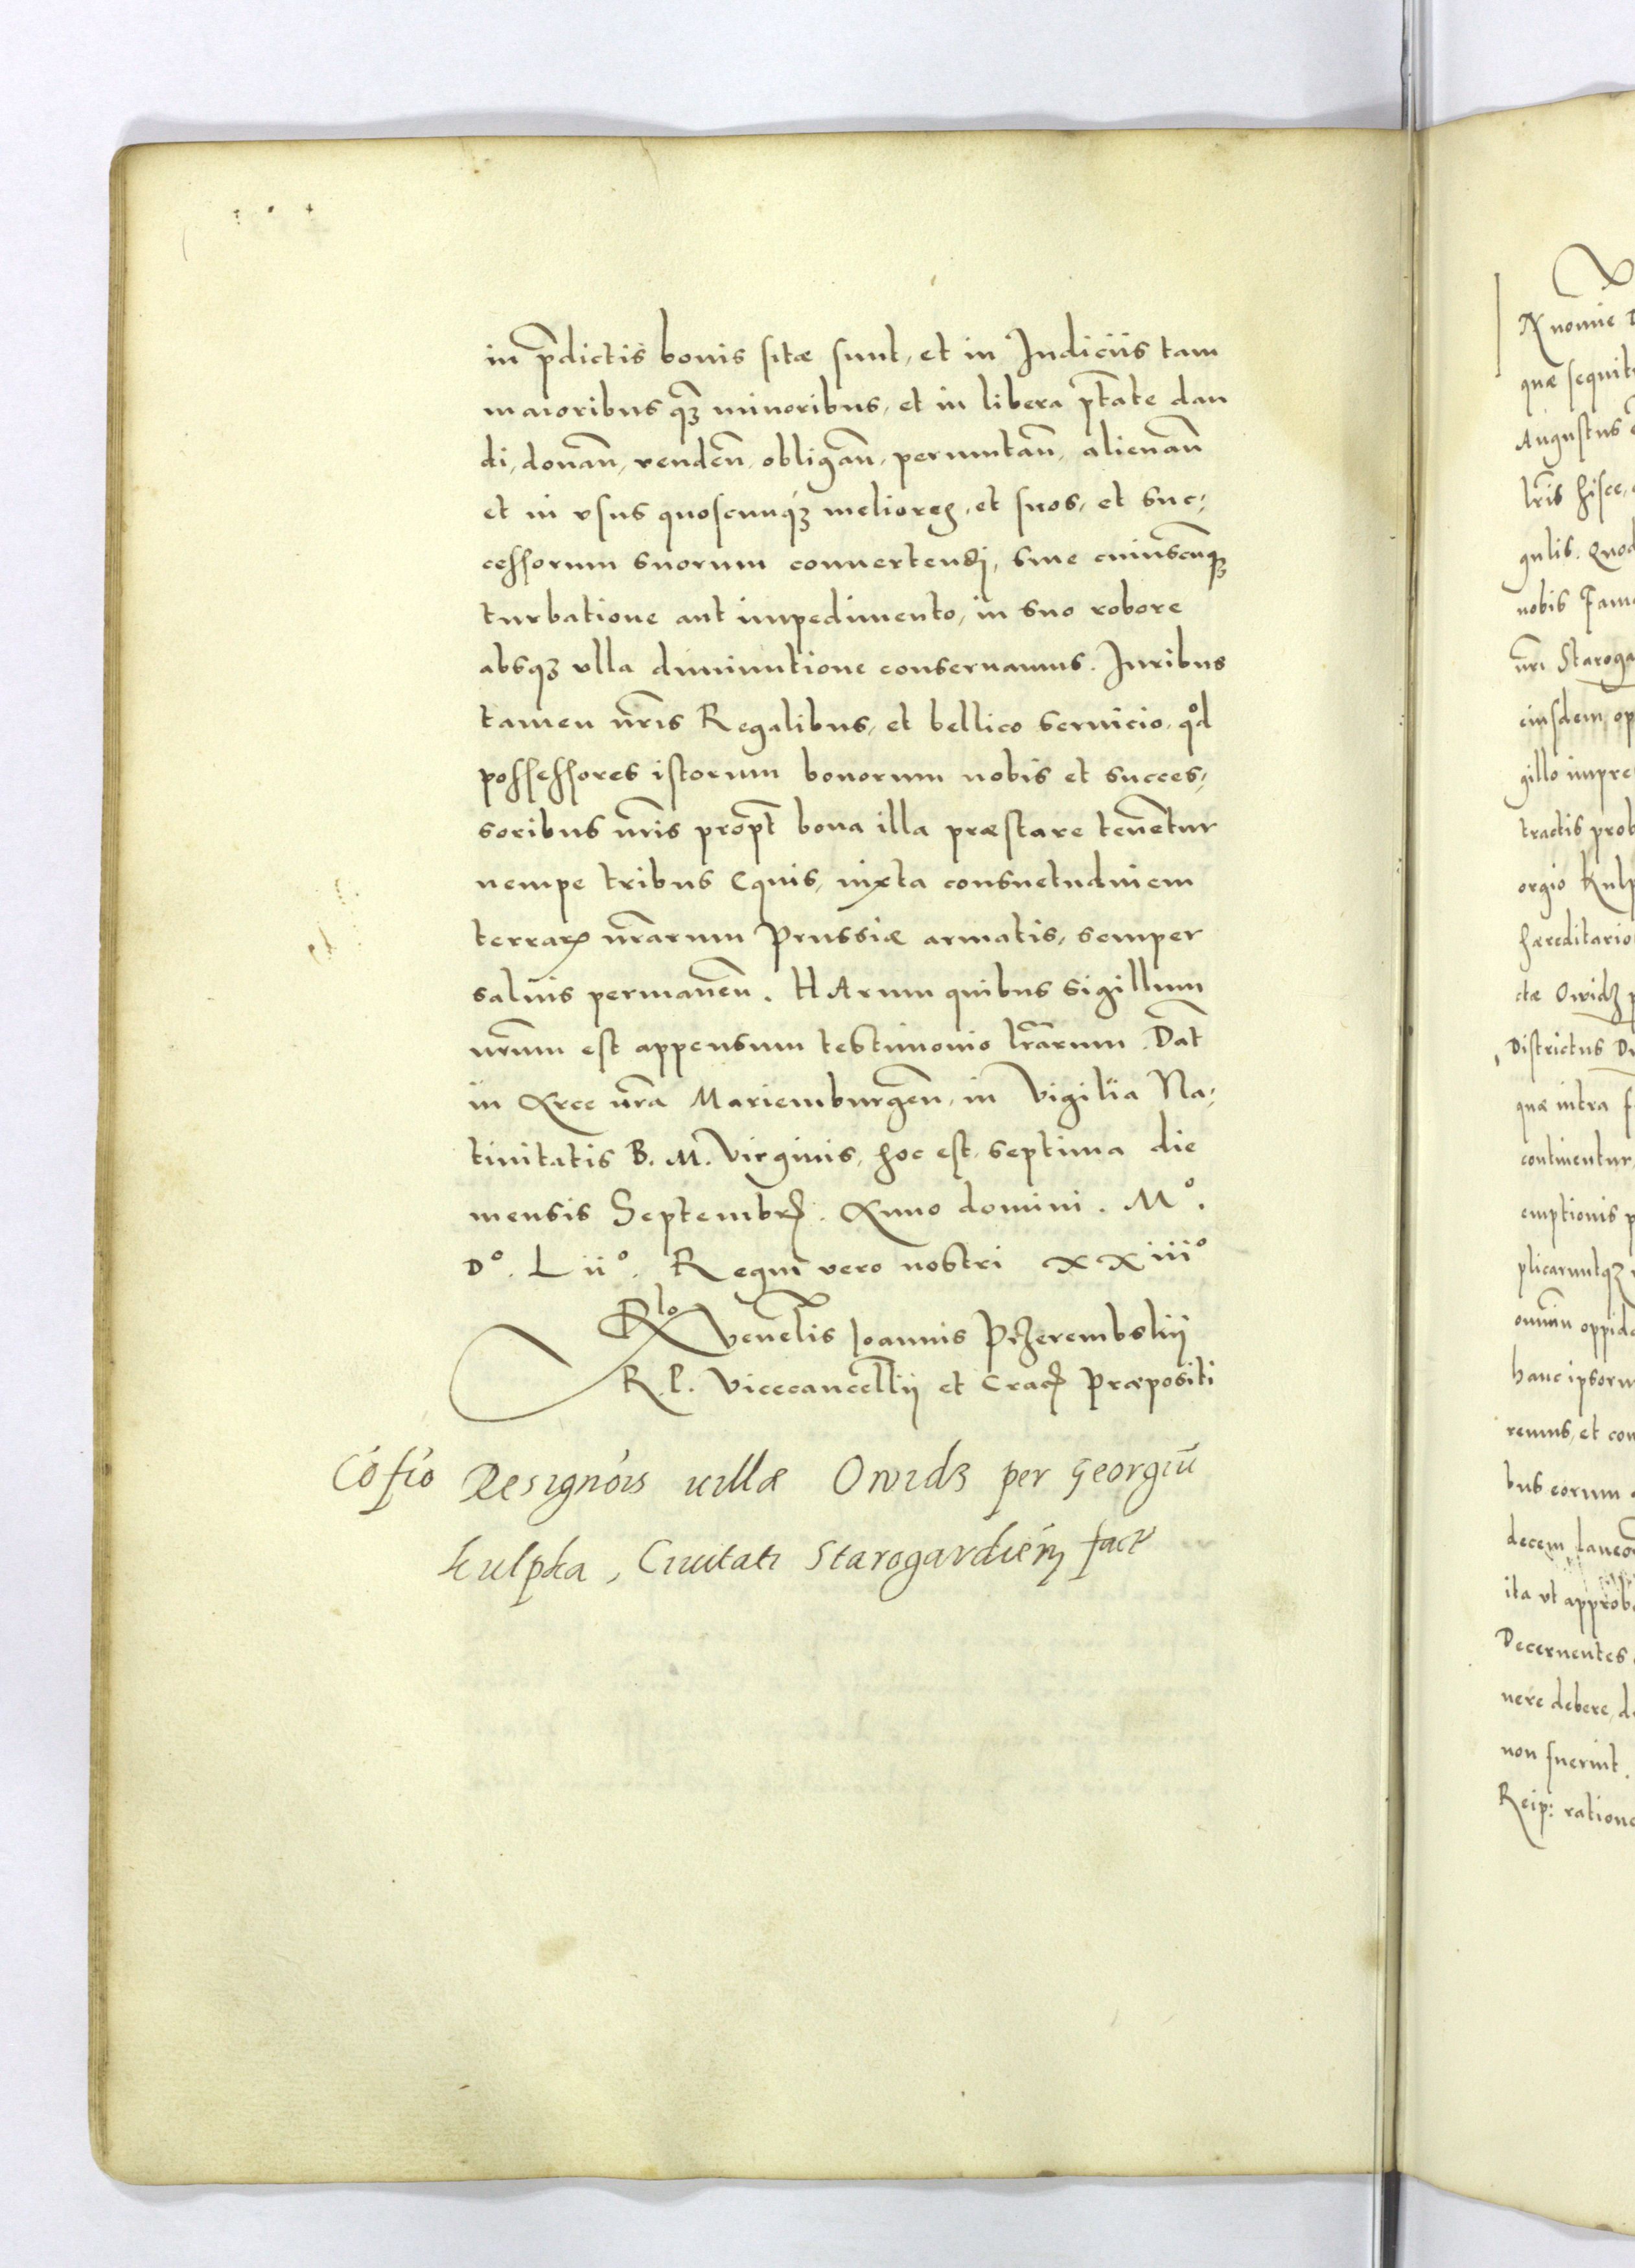 in p̄dictis bonis sitæ sunt, et in Judiciis tam
maioribus qꝫ minoribus, et in libera ptāte dan
di, donan̄, venden̄, obligan̄, permutan̄, alienan̄
et in vsus quoscunqꝫ meliores, et suos, et suc,
cessorum suorum conuertendj, sine cuiuscunqꝫ
turbatione aut impedimento, in suo robore
absqꝫ vlla diminutione conseruamus. Juribus
tamen nr̄is Regalibus, et bellico seruicio, qd̊
possessores istorum bonorum nobis et succes,
soribus nr̄is propt̄ bona illa præstare tenētur
nempe tribus Equis, iuxta consuetudinem
terraꝝ nr̄arum Prussiæ armatis, semper
saluis permanen̄. HArum quibus sigillum
nr̄um est appensum testimonio lr̄arum. Dat̄
in Arce nr̄a Mariemburgen̄, in Vigilia Na,
tiuitatis B. M. Virginis, hoc est, septima die
mensis Septembrꝭ. Anno domini. Mº.
Dº. Liiº. Regni vero nostri xxiiiº
Rlo venēlis Joannis Przerembskij
R. P. Vicecancellij et Cracꝭ Præpositi
Cōfio Resignōis uillæ Owidz per Georgiū
kulpka, Ciuitati Starogardień fact
N nomine
quæ sequit
Augustus
lr̄is hisce,
gulis. Quod
nobis Fam
nr̄i Staroga
eiusdem op
gillo impre
tractis prob
orgio Kulp
hæreditario
ctæ Owidz p
Districtus D
quæ intra f
continentur,
emptionis p
plicaruntqꝫ
omniū oppid
hanc ipsoru
remus, et con
bus eorum
decem laneo
ita vt approb
Decernentes
nere debere, d
non fuerint.
Reip: ratione